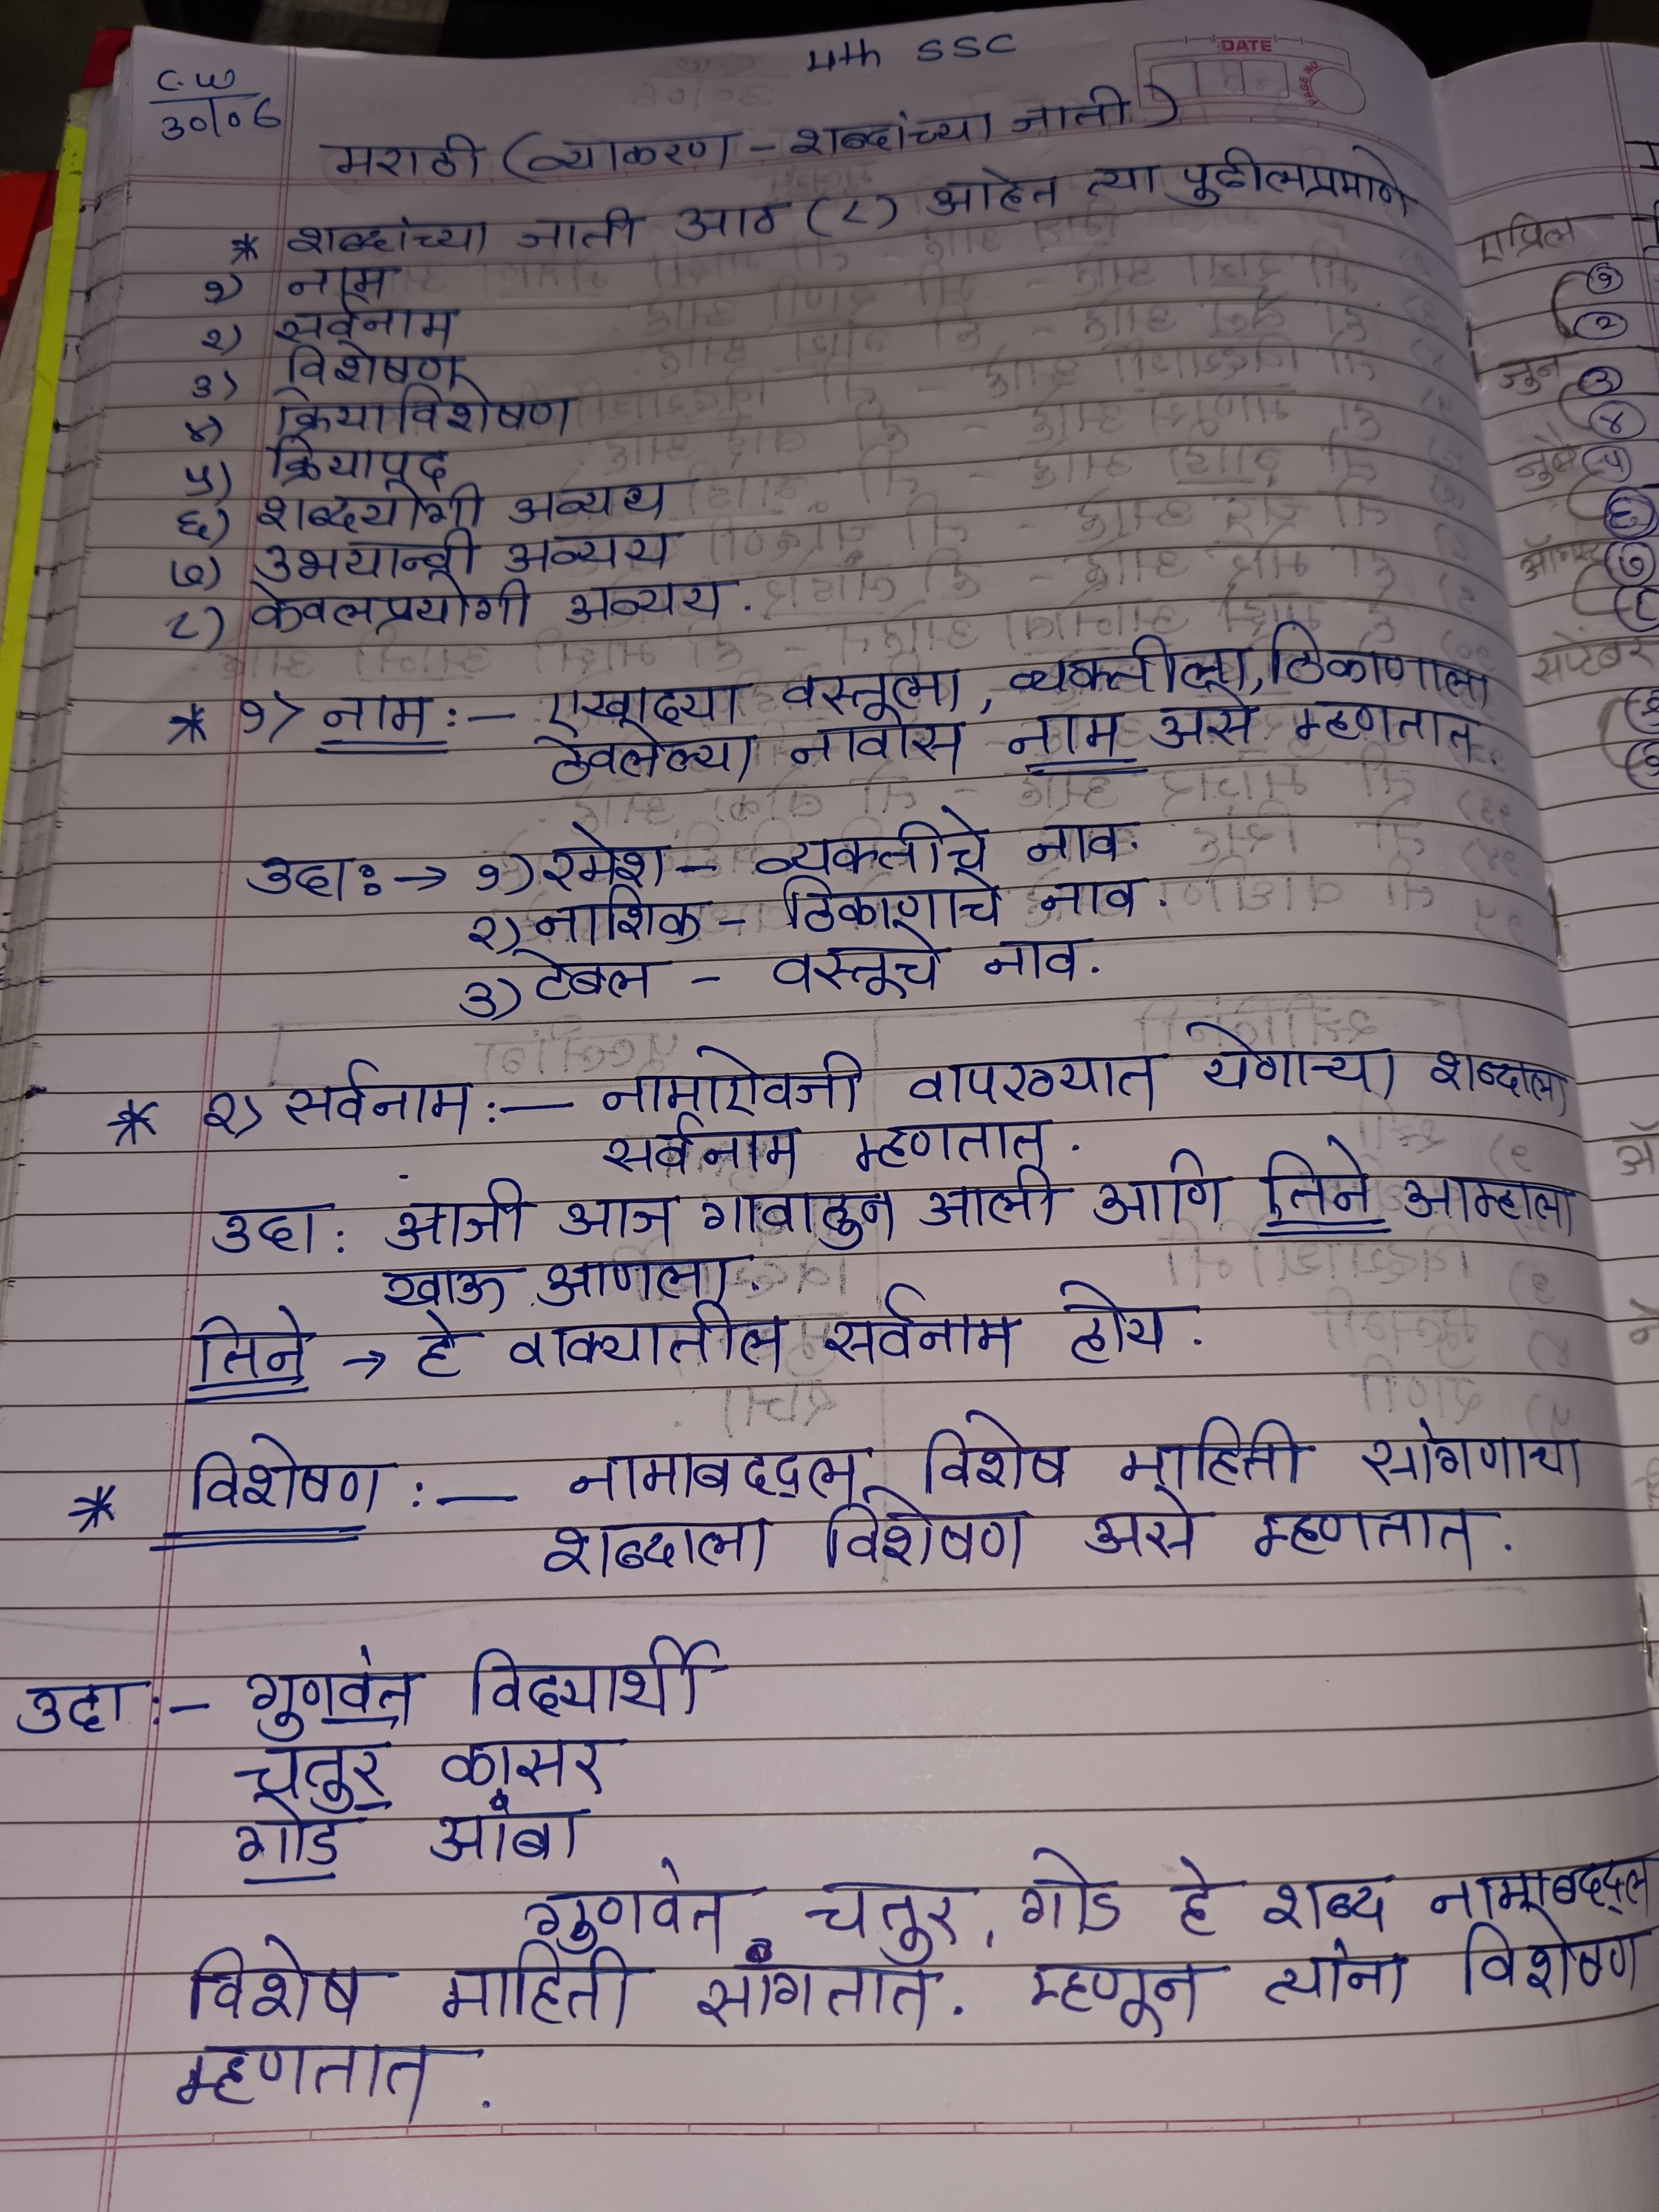 C.W
30/06
4th SSC
DATE
PAGE NO.
मराठी (व्याकरण - शब्दांच्या जाती)
* शब्दांच्या जाती आठ (८) आहेत त्या पुढीलप्रमाणे
१) नाम
२) सर्वनाम
३) विशेषण
४) क्रियाविशेषण
५) क्रियापद
६) शब्दयोगी अव्यय
७) उभयान्वी अव्यय
८) केवलप्रयोगी अव्यय.
* १) नाम :- एखाद्या वस्तूला, व्यक्तीला, ठिकाणाला
ठेवलेल्या नावास नाम असे म्हणतात.
उदा: → १) रमेश - व्यक्तीचे नाव.
२) नाशिक - ठिकाणाचे नाव.
३) टेबल - वस्तूचे नाव.
* २) सर्वनाम :- नामाऐवजी वापरण्यात येणाऱ्या शब्दाला
सर्वनाम म्हणतात.
उदा: आजी आज गावाहुन आली आणि तिने आम्हाला
खाऊ आणला.
तिने → हे वाक्यातील सर्वनाम होय.
* विशेषण :- नामाबद्दल विशेष माहिती सांगणाया
शब्दाला विशेषण असे म्हणतात.
उदा :- गुणवंत विद्यार्थी
चतुर कासर
गोड आंबा
गुणवंत, चतुर, गोड हे शब्द नामाबद्दल
विशेष माहिती सांगतात. म्हणून त्यांना विशेषण
म्हणतात.
एप्रिल
१
२
जून
३
४
५
६
७
सप्टेंबर